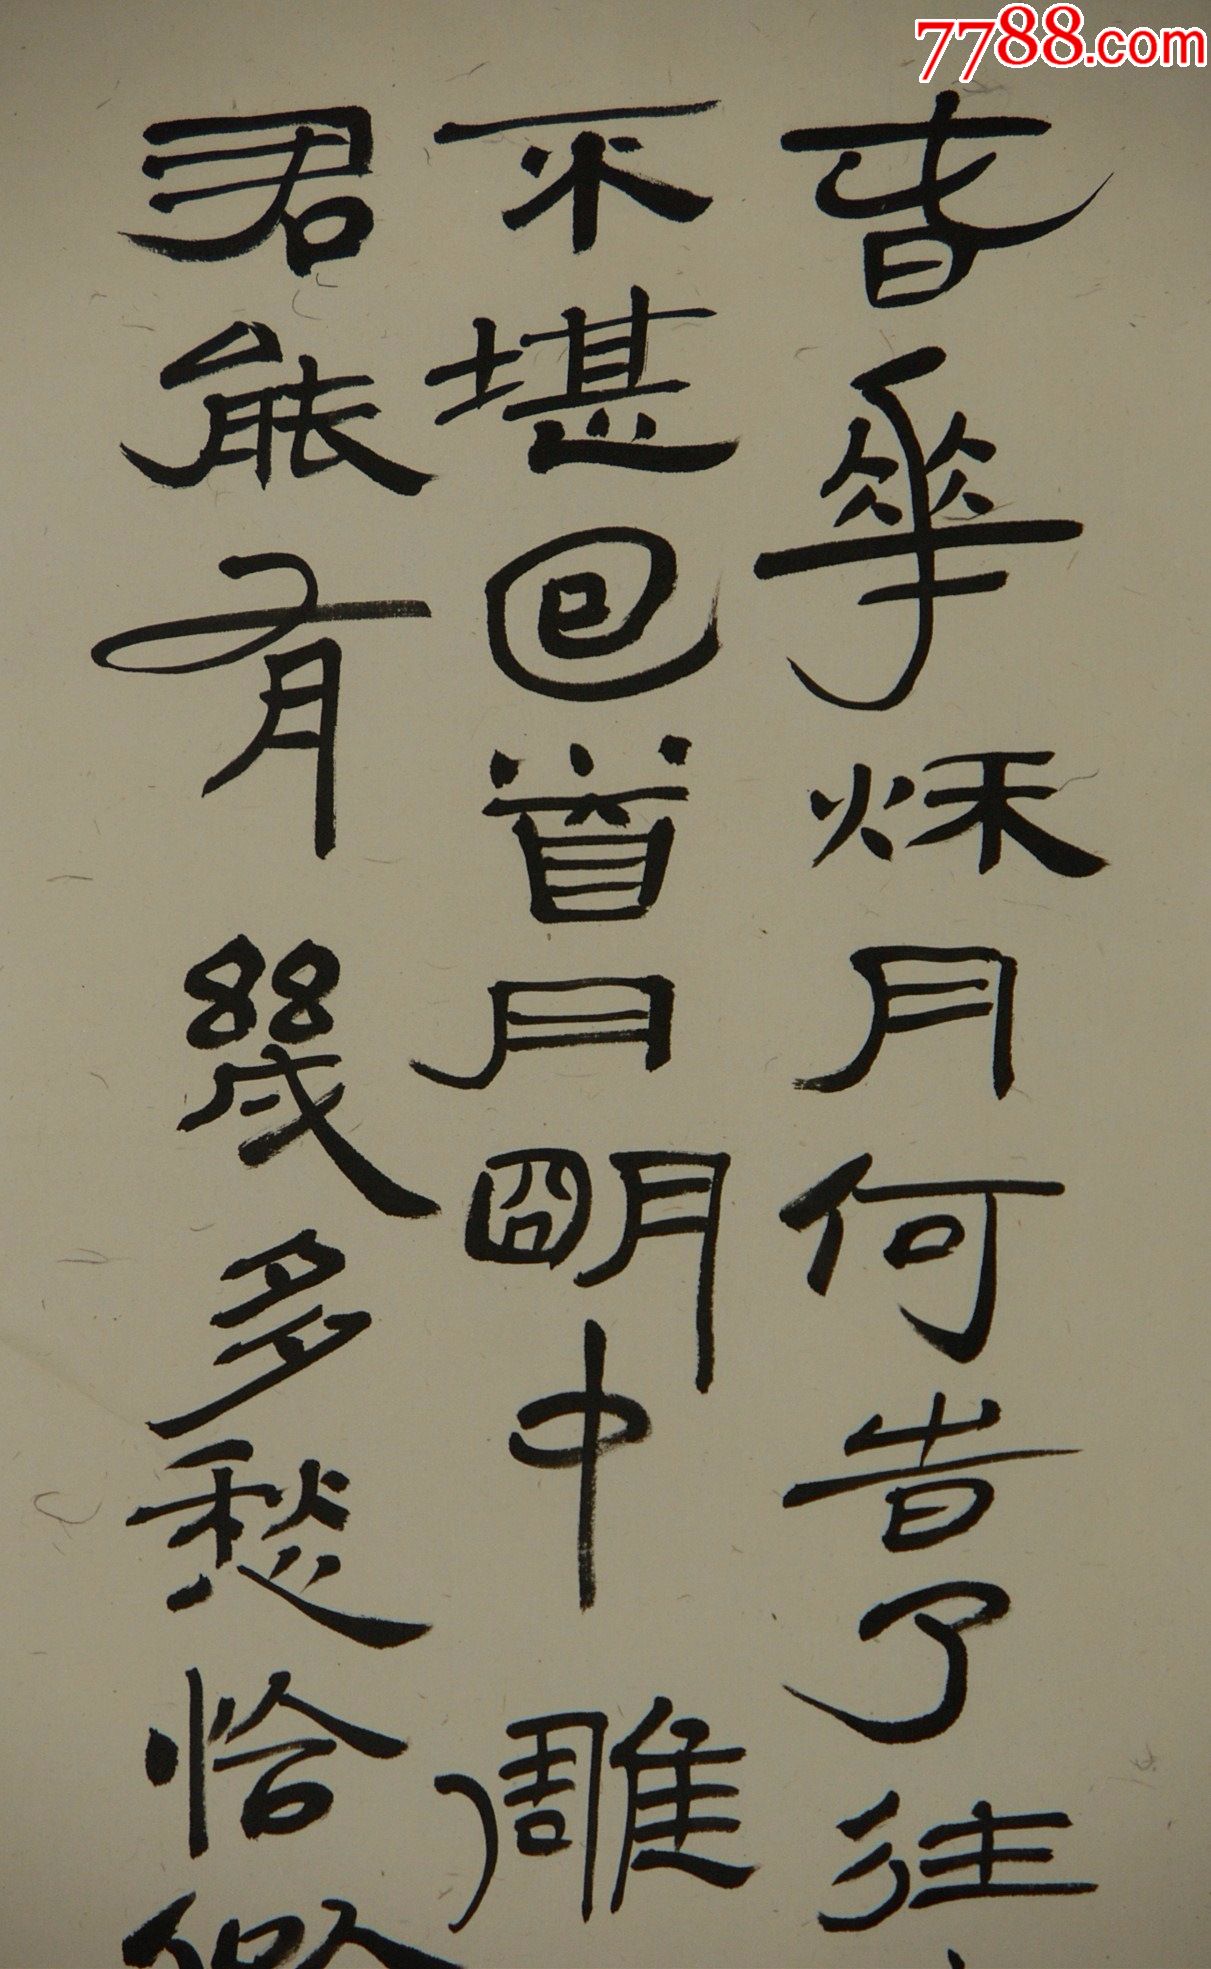 7788.com
春華秌月何旹了往
不堪回首月朙中雕
君能有幾多愁恰似